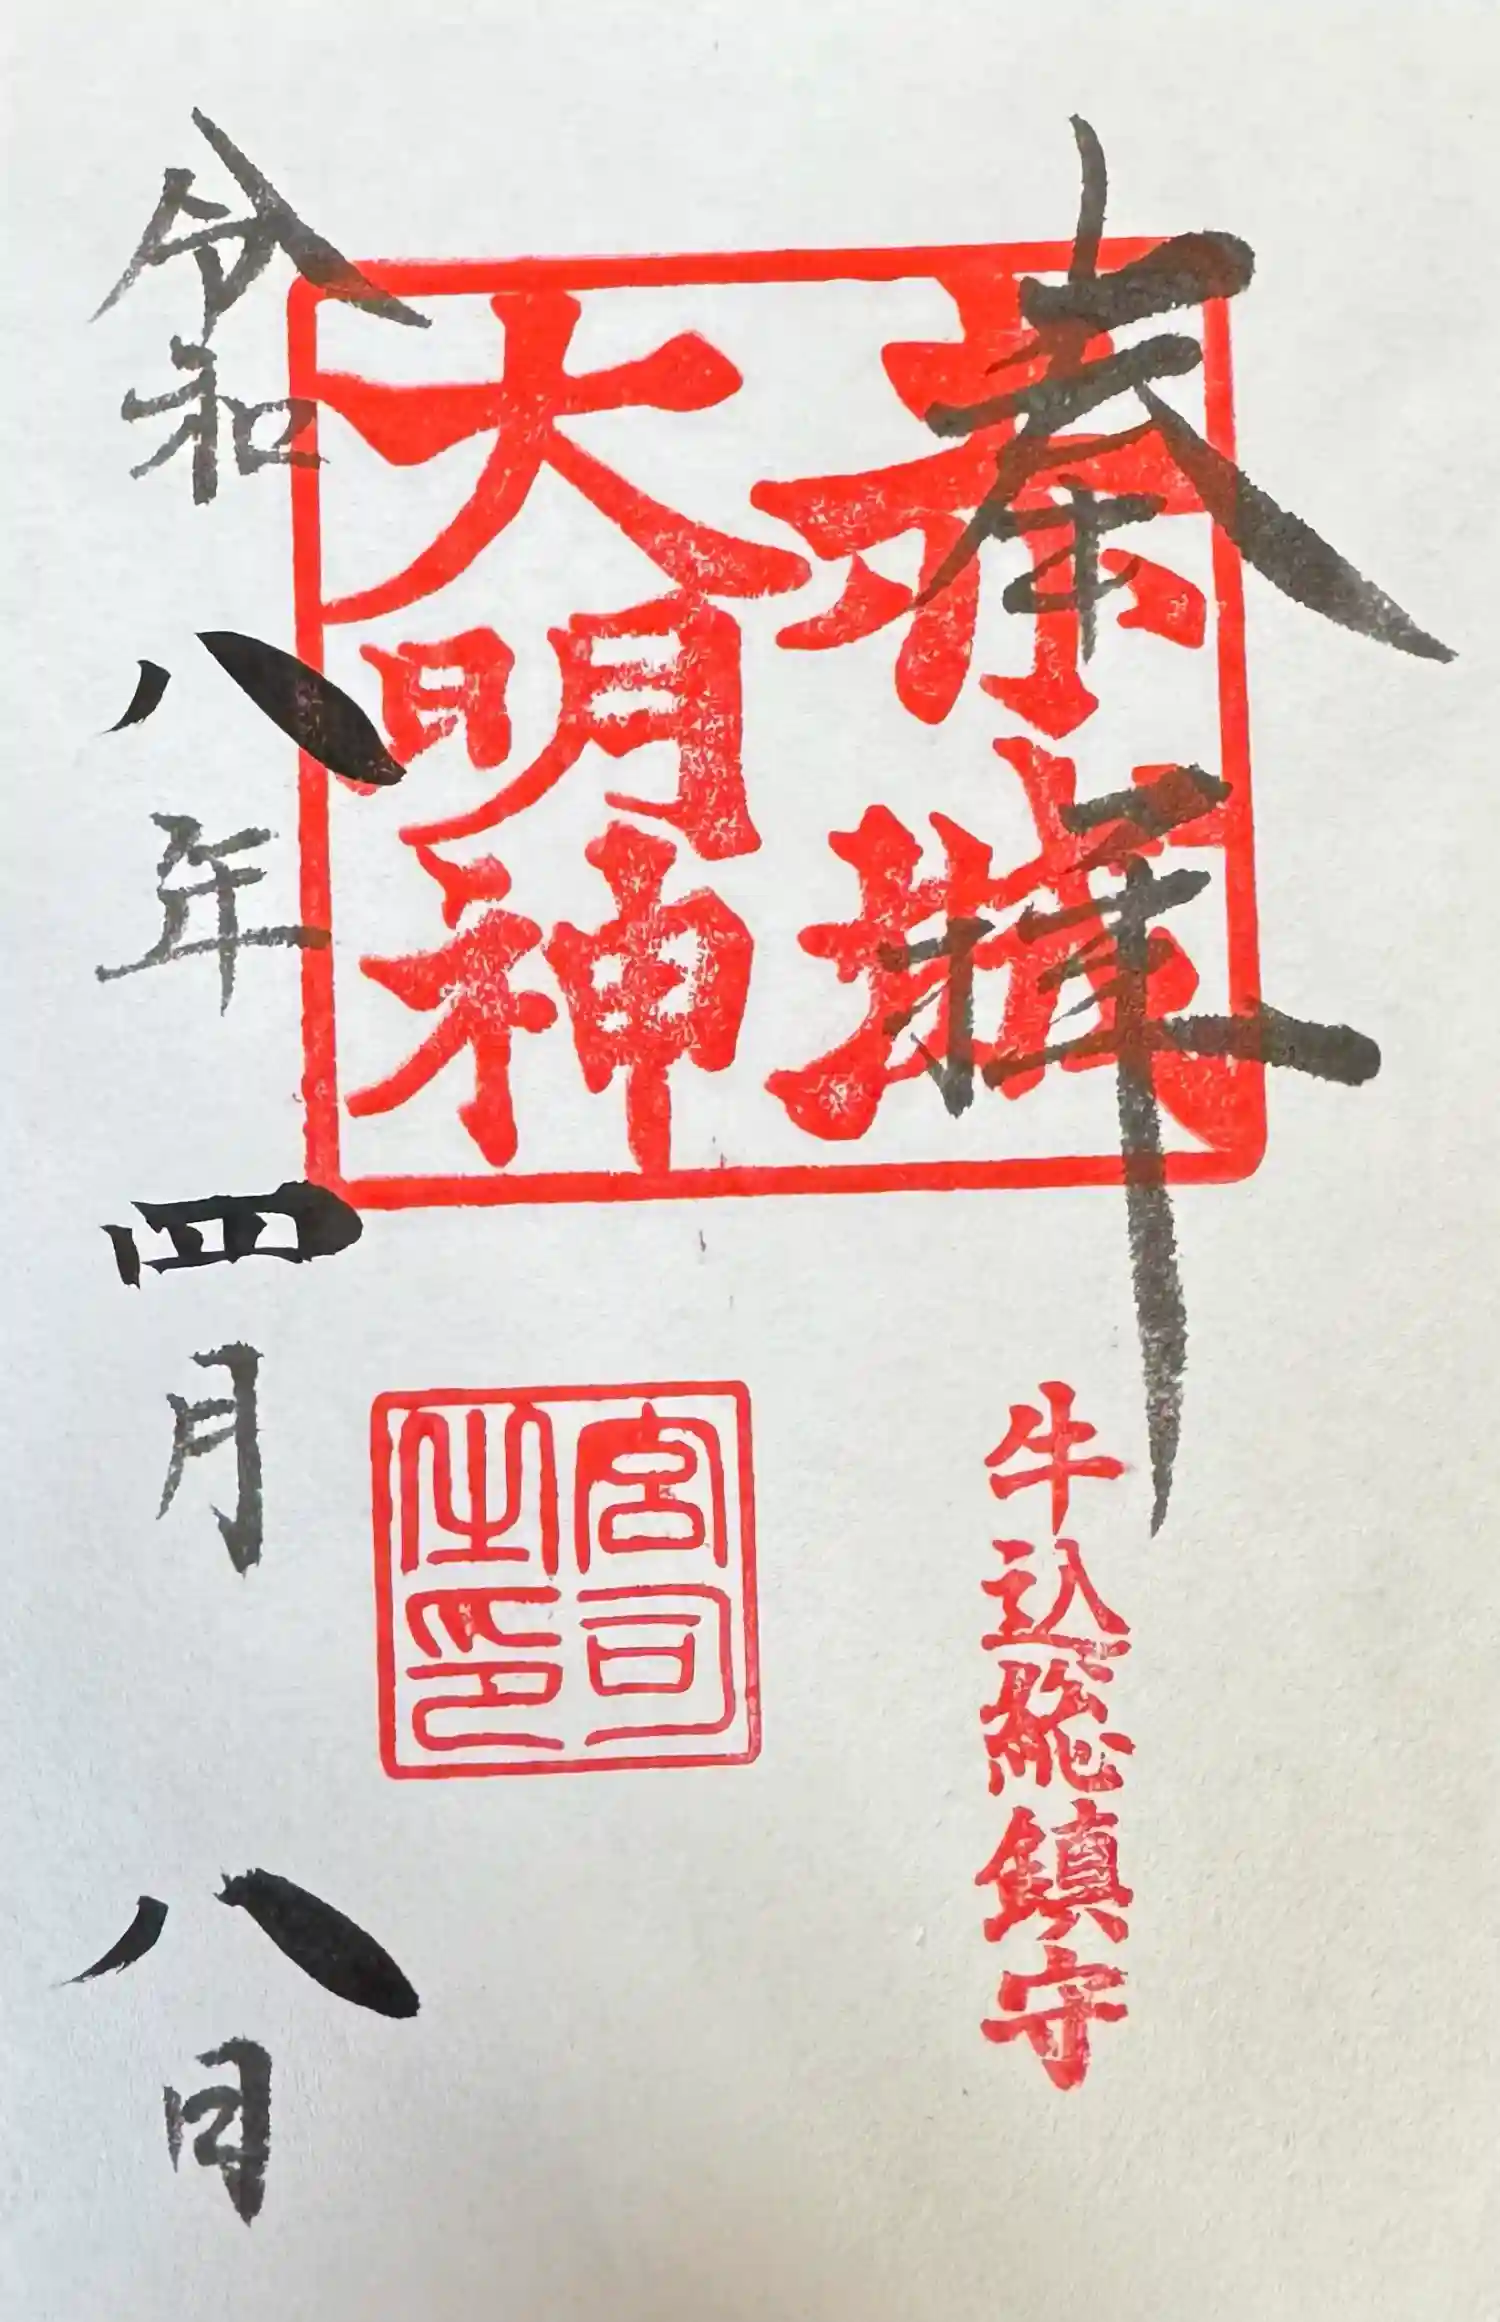 奉拝
赤城
大明神
牛込総鎮守
宮司
之印
令和八年四月八日